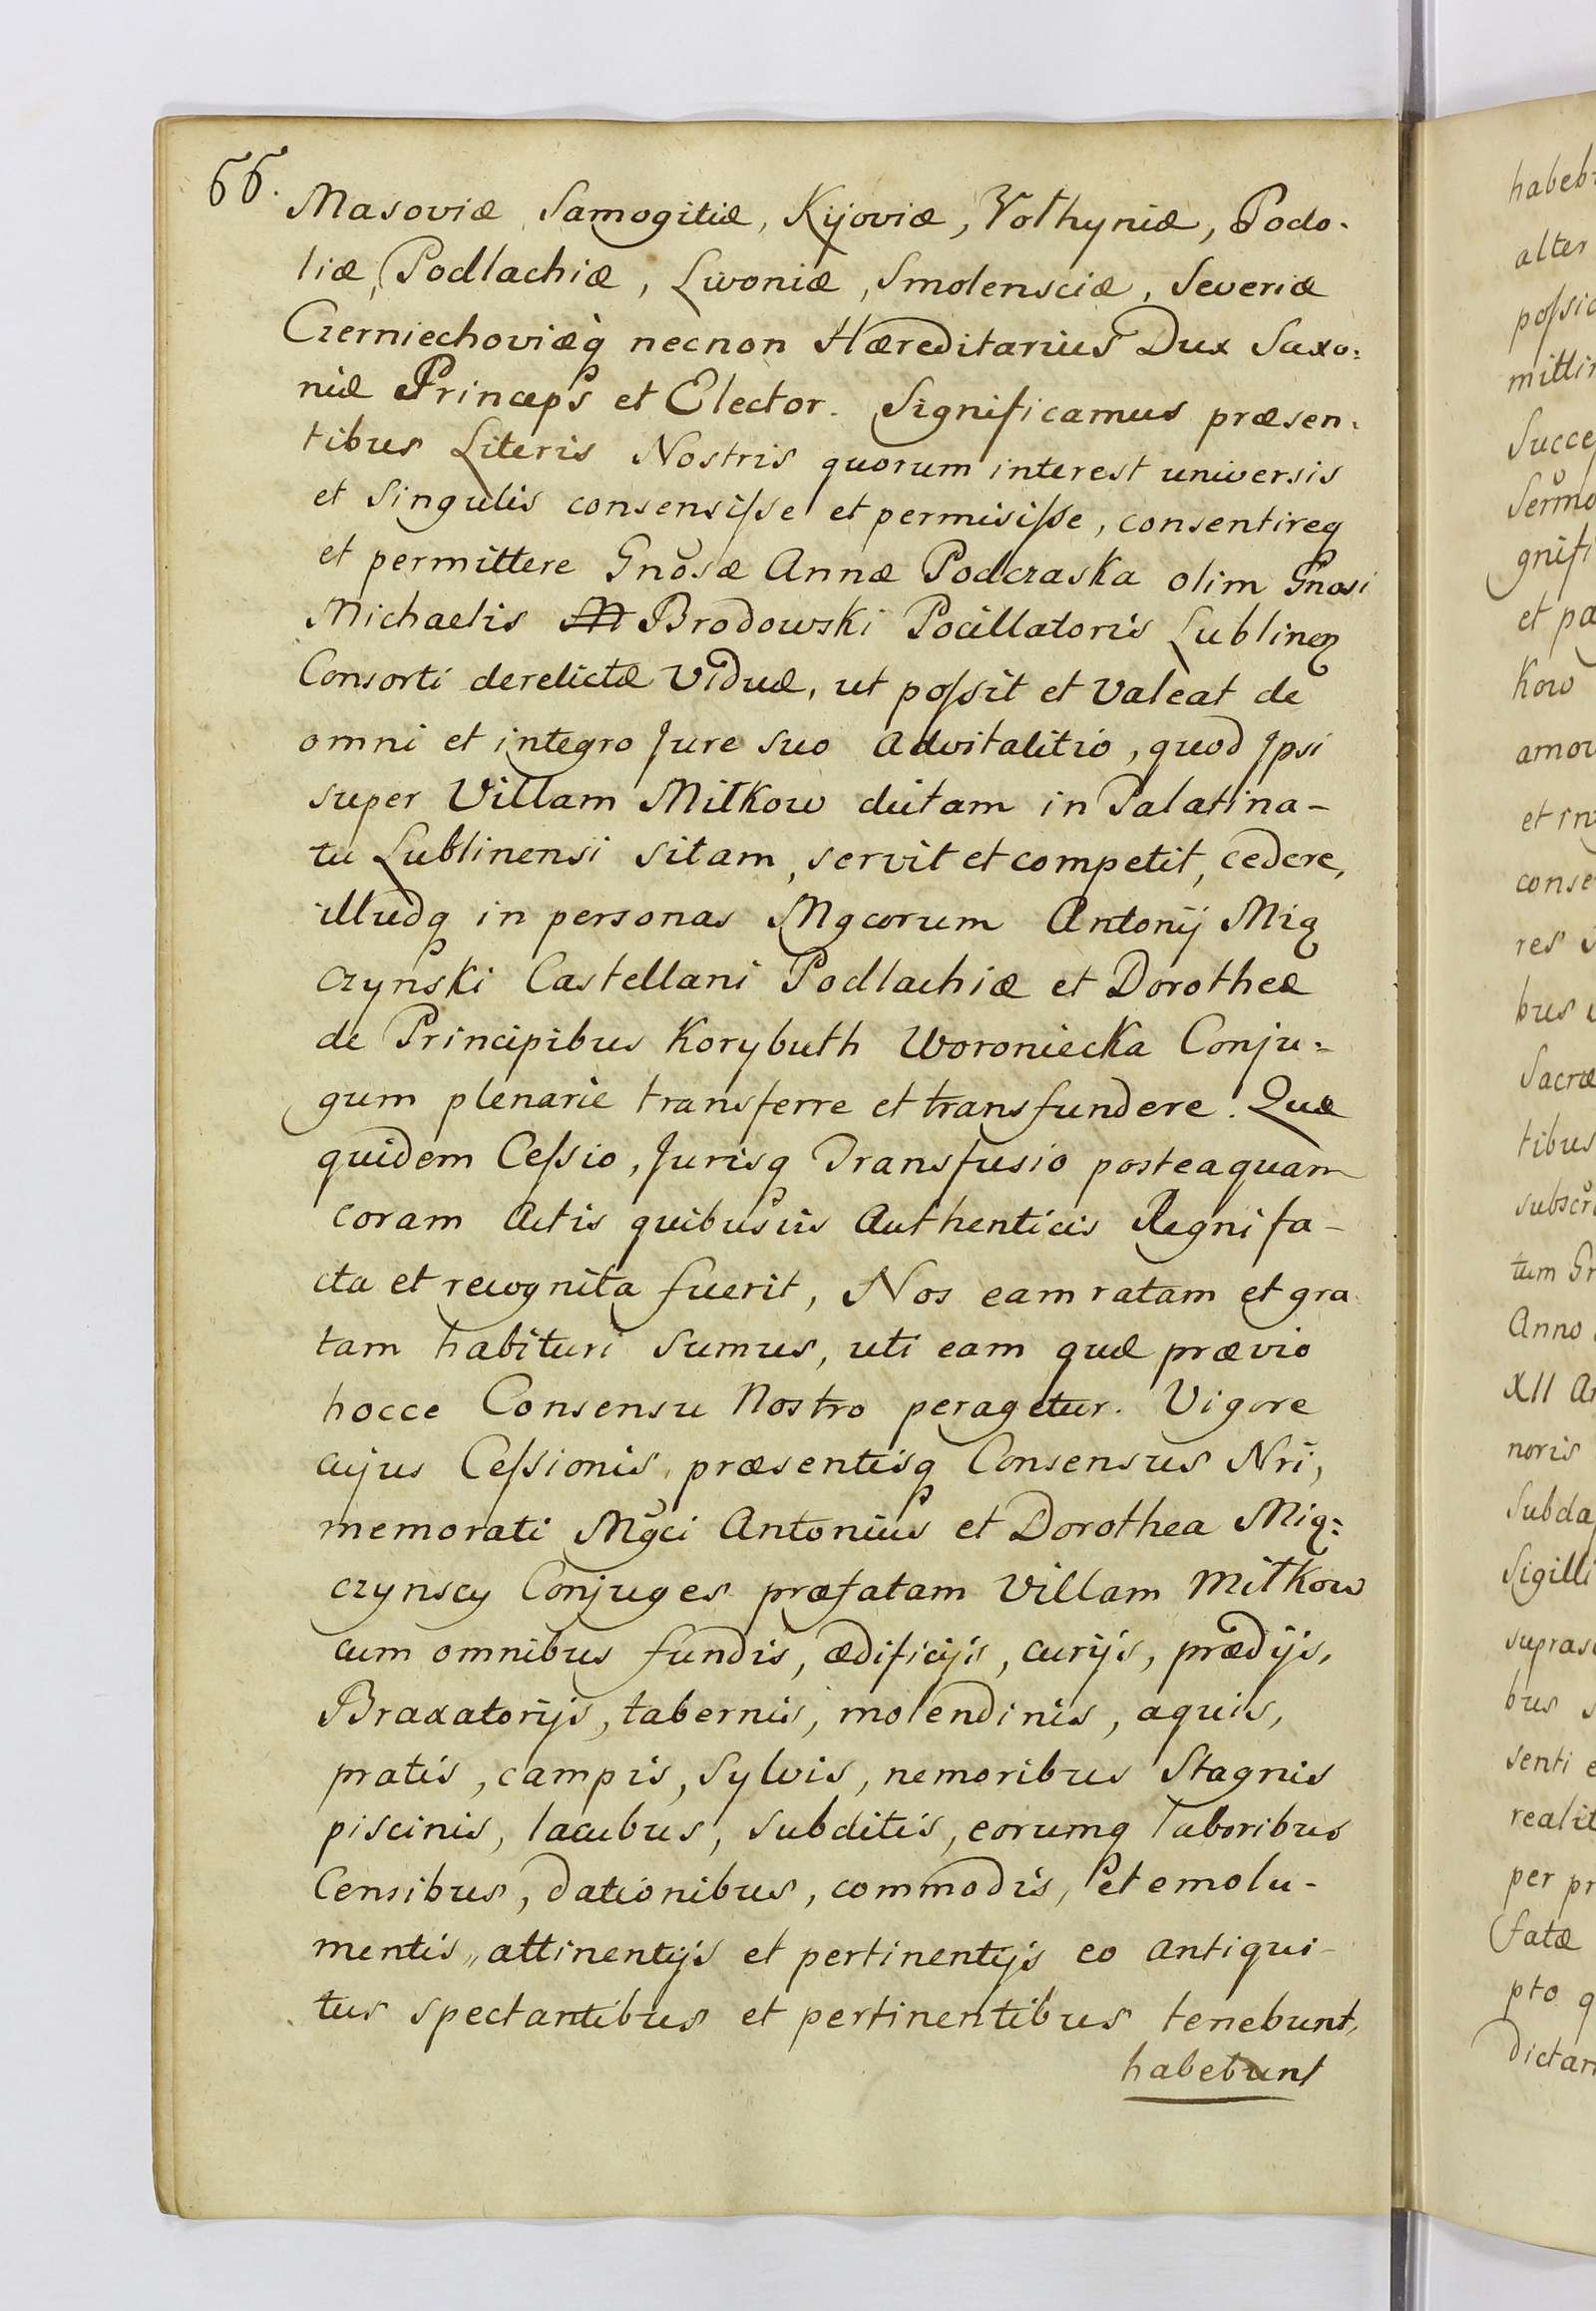 66.
Masoviæ, Samogitiæ, Kijoviæ, Volhyniæ, Podo-
liæ, Podlachiæ, Livoniæ, Smolensciæ, Severiæ
Czerniechoviæq́ necnon Hæreditarius Dux Saxo:
niæ Princeps et Elector. Significamus præsen-
tibus Literis Nostris quorum interest universis
et Singulis consensiſse et permisiſse, consentireq
et permittere Gnosæ Annæ Podczaska olim Gnosi
Michaelis Brodowski Pocillatoris Lublinen
Consorti derelictæ Viduæ, ut poſsit et Valeat de
omni et integro Jure suo Advitalitio, quod Ipsi
super Villam Miłkow dictam in Palatina-
tu Lublinensi sitam, servit et competit, cedere,
illudq in personas Mgcorum Antonij Mią
czynski Castellani Podlachiæ et Dorotheæ
de Principibus Korybuth Woroniecka Conju:
gum plenarie transferre et transfundere. Quæ
quidem Ceſsio, Jurisq Transfusio posteaquam
coram Actis quibusvis Authenticis Regni fa-
cta et recognita fuerit, Nos eam ratam et gra
tam habituri sumus, uti eam quæ prævio
hocce Consensu Nostro peragetur. Vigore
cujus Ceſsionis, præsentisq Consensus Nri,
memorati Mgci Antonius et Dorothea Mią:
czynscy Conjuges præfatam Villam Miłkow
cum omnibus fundis, ædificijs, curijs, prædijs,
Braxatorijs, tabernis, molendinis, aquis,
pratis, campis, Sylvis, nemoribus Stagnis
piscinis, lacubus, subditis, eorumq laboribus
Censibus, dationibus, commodis, et emolu-
mentis, attinentijs et pertinentijs eo antiqui-
tus spectantibus et pertinentibus tenebunt,
habebunt